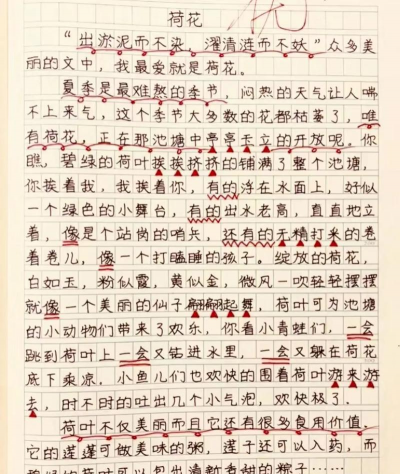 荷花
“出淤泥而不染，濯清涟而不妖”众多美
丽的文中，我最爱就是荷花。
夏季是最难熬的季节，闷热的天气让人喘
不上来气，这个季节大多数的花都枯萎了，唯
有荷花，正在那池塘中亭亭玉立的开放呢。你
瞧，碧绿的荷叶挨挨挤挤的铺满了整个池塘，
你挨着我，我挨着你，有的浮在水面上，好似
一个绿色的小舞台，有的出水老高，直直地立
着，像是个站岗的哨兵，还有的无精打采的卷
着卷儿，像一个打瞌睡的孩子。绽放的荷花，
白如玉，粉似霞，黄似金，微风一吹轻轻摆摆
就像一个美丽的仙子翩翩起舞，荷叶可为池塘
的小动物们带来了欢乐，你看小青蛙们，一会
跳到荷叶上一会又钻进水里，一会又躲在荷花
底下乘凉，小鱼儿们也欢快的围着荷叶游来游
去，时不时的吐出几个小气泡，欢快极了。
荷叶不仅美丽而且它还有很多食用价值，
它的莲蓬可做美味的粥，莲子还可以入药，而